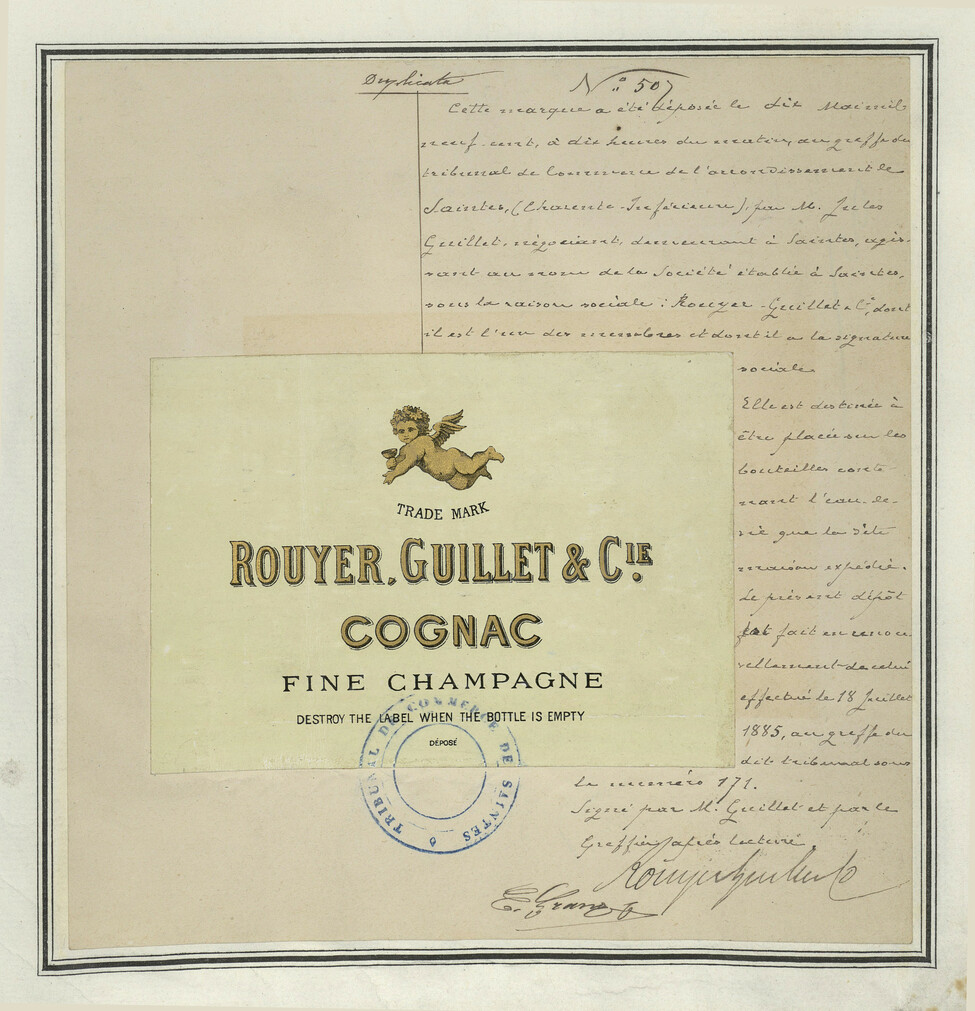 Duplicata
N° 507
Cette marque a été déposée le dix Mai mil
neuf-cent, à dix heures du matin, au greffe du
tribunal de Commerce de l'arrondissement de
Saintes, (Charente-Inférieure), par M. Jules
Guillet, négociant, demeurant à Saintes, agis-
sant au nom de la Société établie à Saintes,
sous la raison sociale : Rouyer-Guillet & Cie, dont
il est l'un des membres et dont il a la signature
sociale.
Elle est destinée à
être placée sur les
bouteilles conte-
nant l'eau-de-
vie que la dite
maison expédie.
Le présent dépôt
est fait en renou-
vellement de celui
effectué le 18 Juillet
1885, au greffe du
dit tribunal sous
le numéro 171.
Signé par M. Guillet et par le
Greffier après lecture.
Rouyer Guillet & Co
TRADE MARK
ROUYER, GUILLET & CIE.
COGNAC
FINE CHAMPAGNE
DESTROY THE LABEL WHEN THE BOTTLE IS EMPTY
DÉPOSÉ
TRIBUNAL DE COMMERCE DE SAINTES